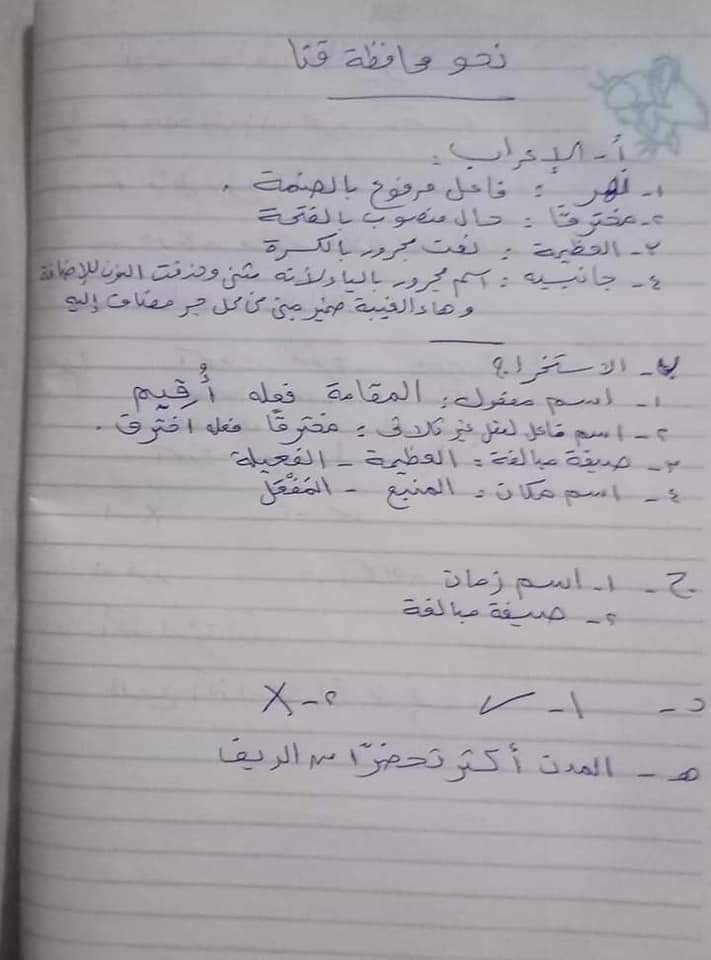 نحو محافظة قنا
أ- الإعراب :
١- نهر : فاعل مرفوع بالضمة .
٢- مخترقًا : حال منصوب بالفتحة
٣- العظيمة : نعت مجرور بالكسرة
٤- جانبيه : اسم مجرور بالياء لأنه مثنى وحذفت النون للإضافة
وهاء الغيبة ضمير مبنى فى محل جر مضاف إليه
ب- الاستخراج
١- اسم مفعول : المقامة فعله أُقِيم
٢- اسم فاعل لفعل غير ثلاثى : مخترقًا فعله اخترق .
٣- صيغة مبالغة : العظيمة - الفعيلة
٤- اسم مكان : المنبع - المَفْعَل
ج- ١- اسم زمان
٢- صيغة مبالغة
د- ١- ✓ ٢- X
هـ- المدن أكثر تحضرًا من الريف